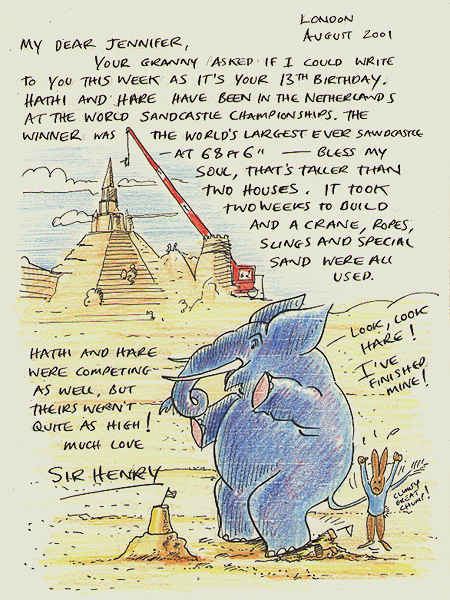 LONDON
AUGUST 2001
MY DEAR JENNIFER,
YOUR GRANNY ASKED IF I COULD WRITE
TO YOU THIS WEEK AS IT'S YOUR 13TH BIRTHDAY.
HATHI AND HARE HAVE BEEN IN THE NETHERLANDS
AT THE WORLD SANDCASTLE CHAMPIONSHIPS. THE
WINNER WAS THE WORLD'S LARGEST EVER SANDCASTLE
- AT 68 FT 6" — BLESS MY
SOUL, THAT'S TALLER THAN
TWO HOUSES. IT TOOK
TWO WEEKS TO BUILD
AND A CRANE, ROPES,
SLINGS AND SPECIAL
SAND WERE ALL
USED.
LOOK, LOOK
HARE!
I'VE
FINISHED
MINE!
HATHI AND HARE
WERE COMPETING
AS WELL, BUT
THEIRS WEREN'T
QUITE AS HIGH!
MUCH LOVE
SIR HENRY
CLUMSY
GREAT
CHUMP!